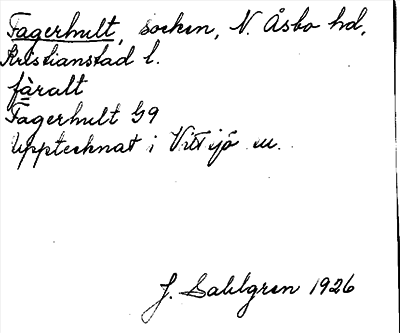 Fagerhult, socken, N. Åsbo hd,
Kristianstad l.
fàralt
Fagerhult G9
Upptecknat i Vittsjö sn.
J. Sahlgren 1926